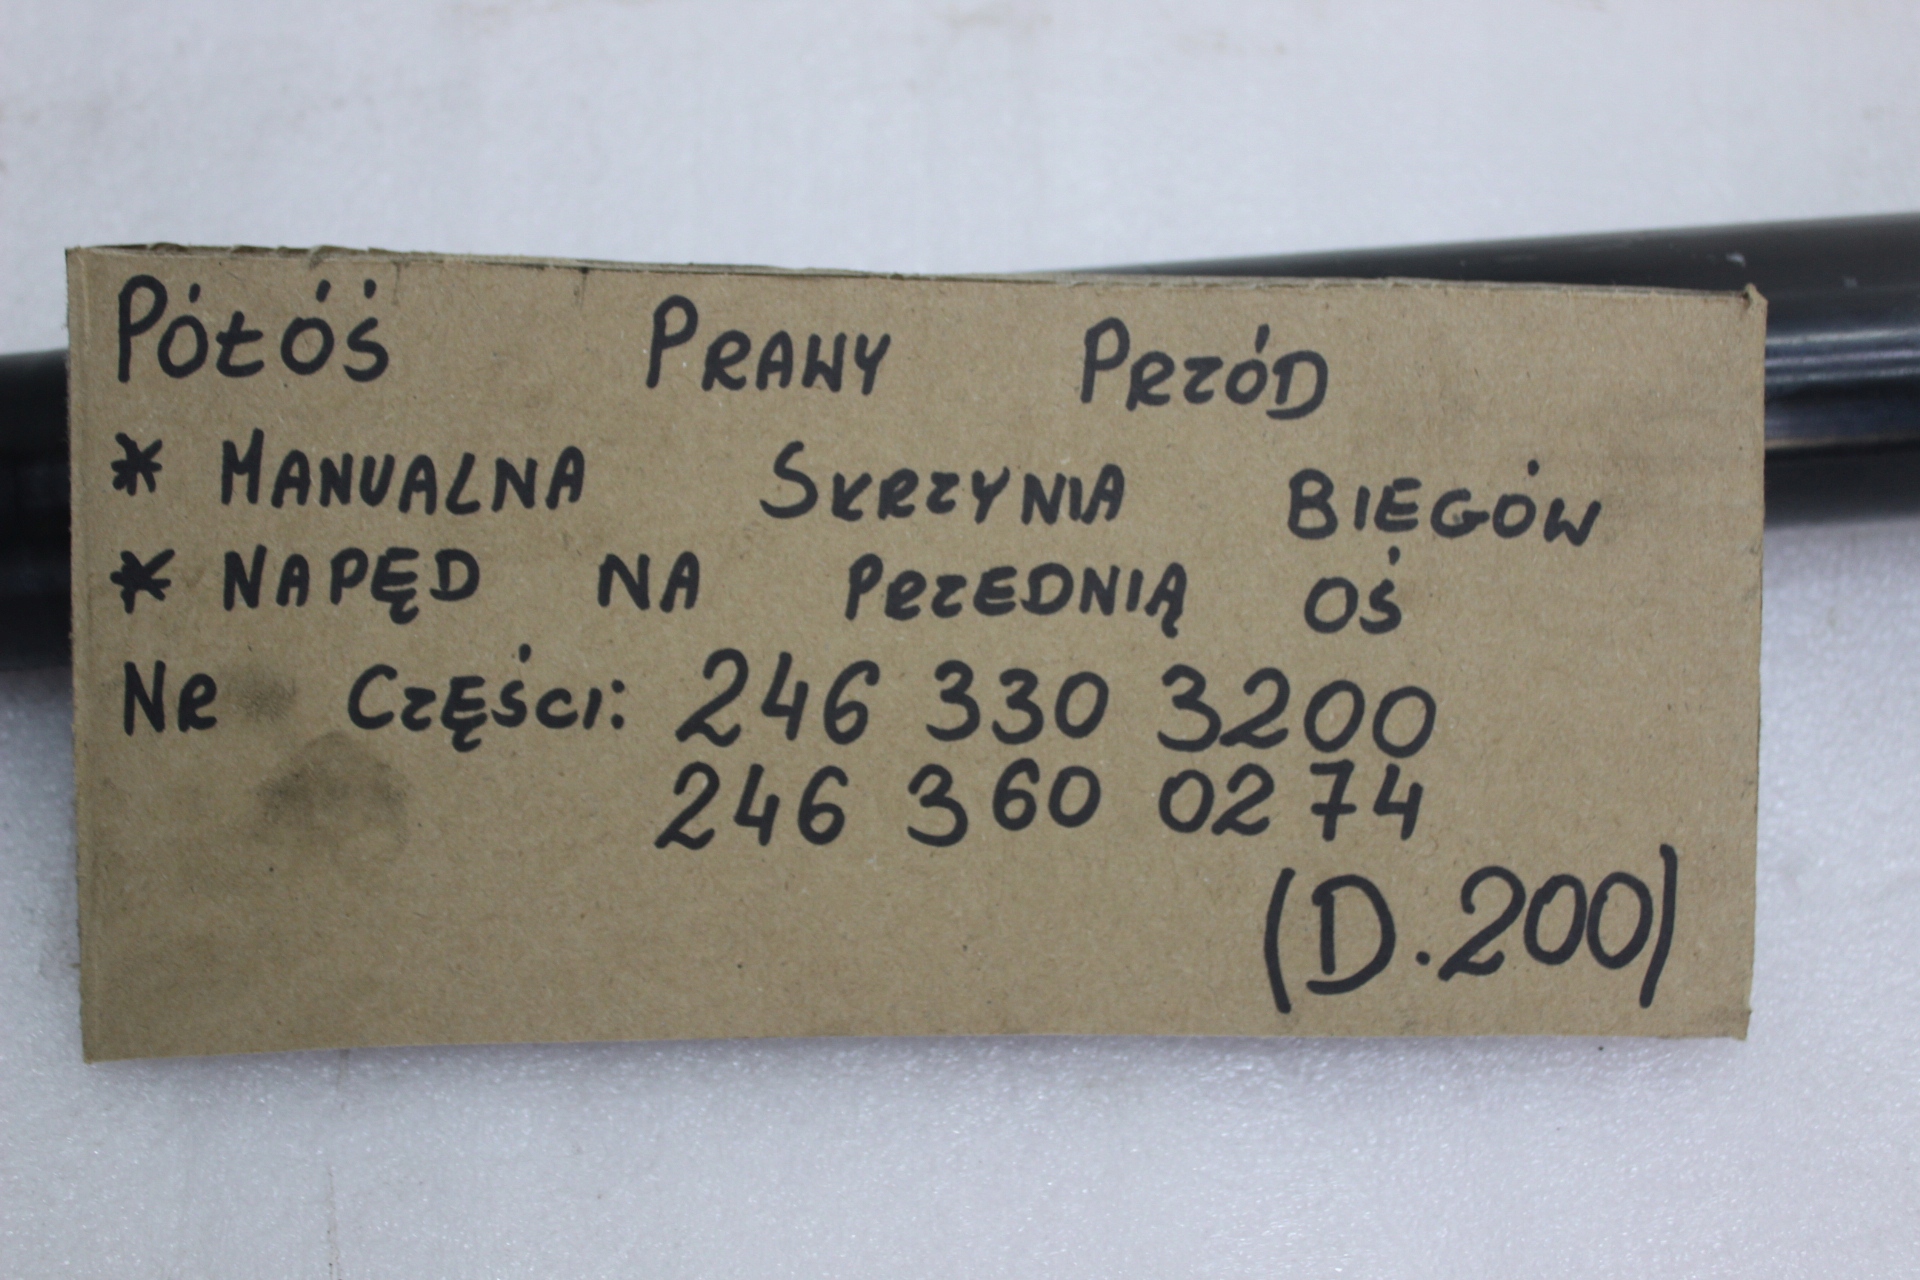 Półoś Prawy Przód
* Manualna Skrzynia Biegów
* Napęd na przednią oś
Nr Części: 246 330 3200
246 360 0274
(D.200)